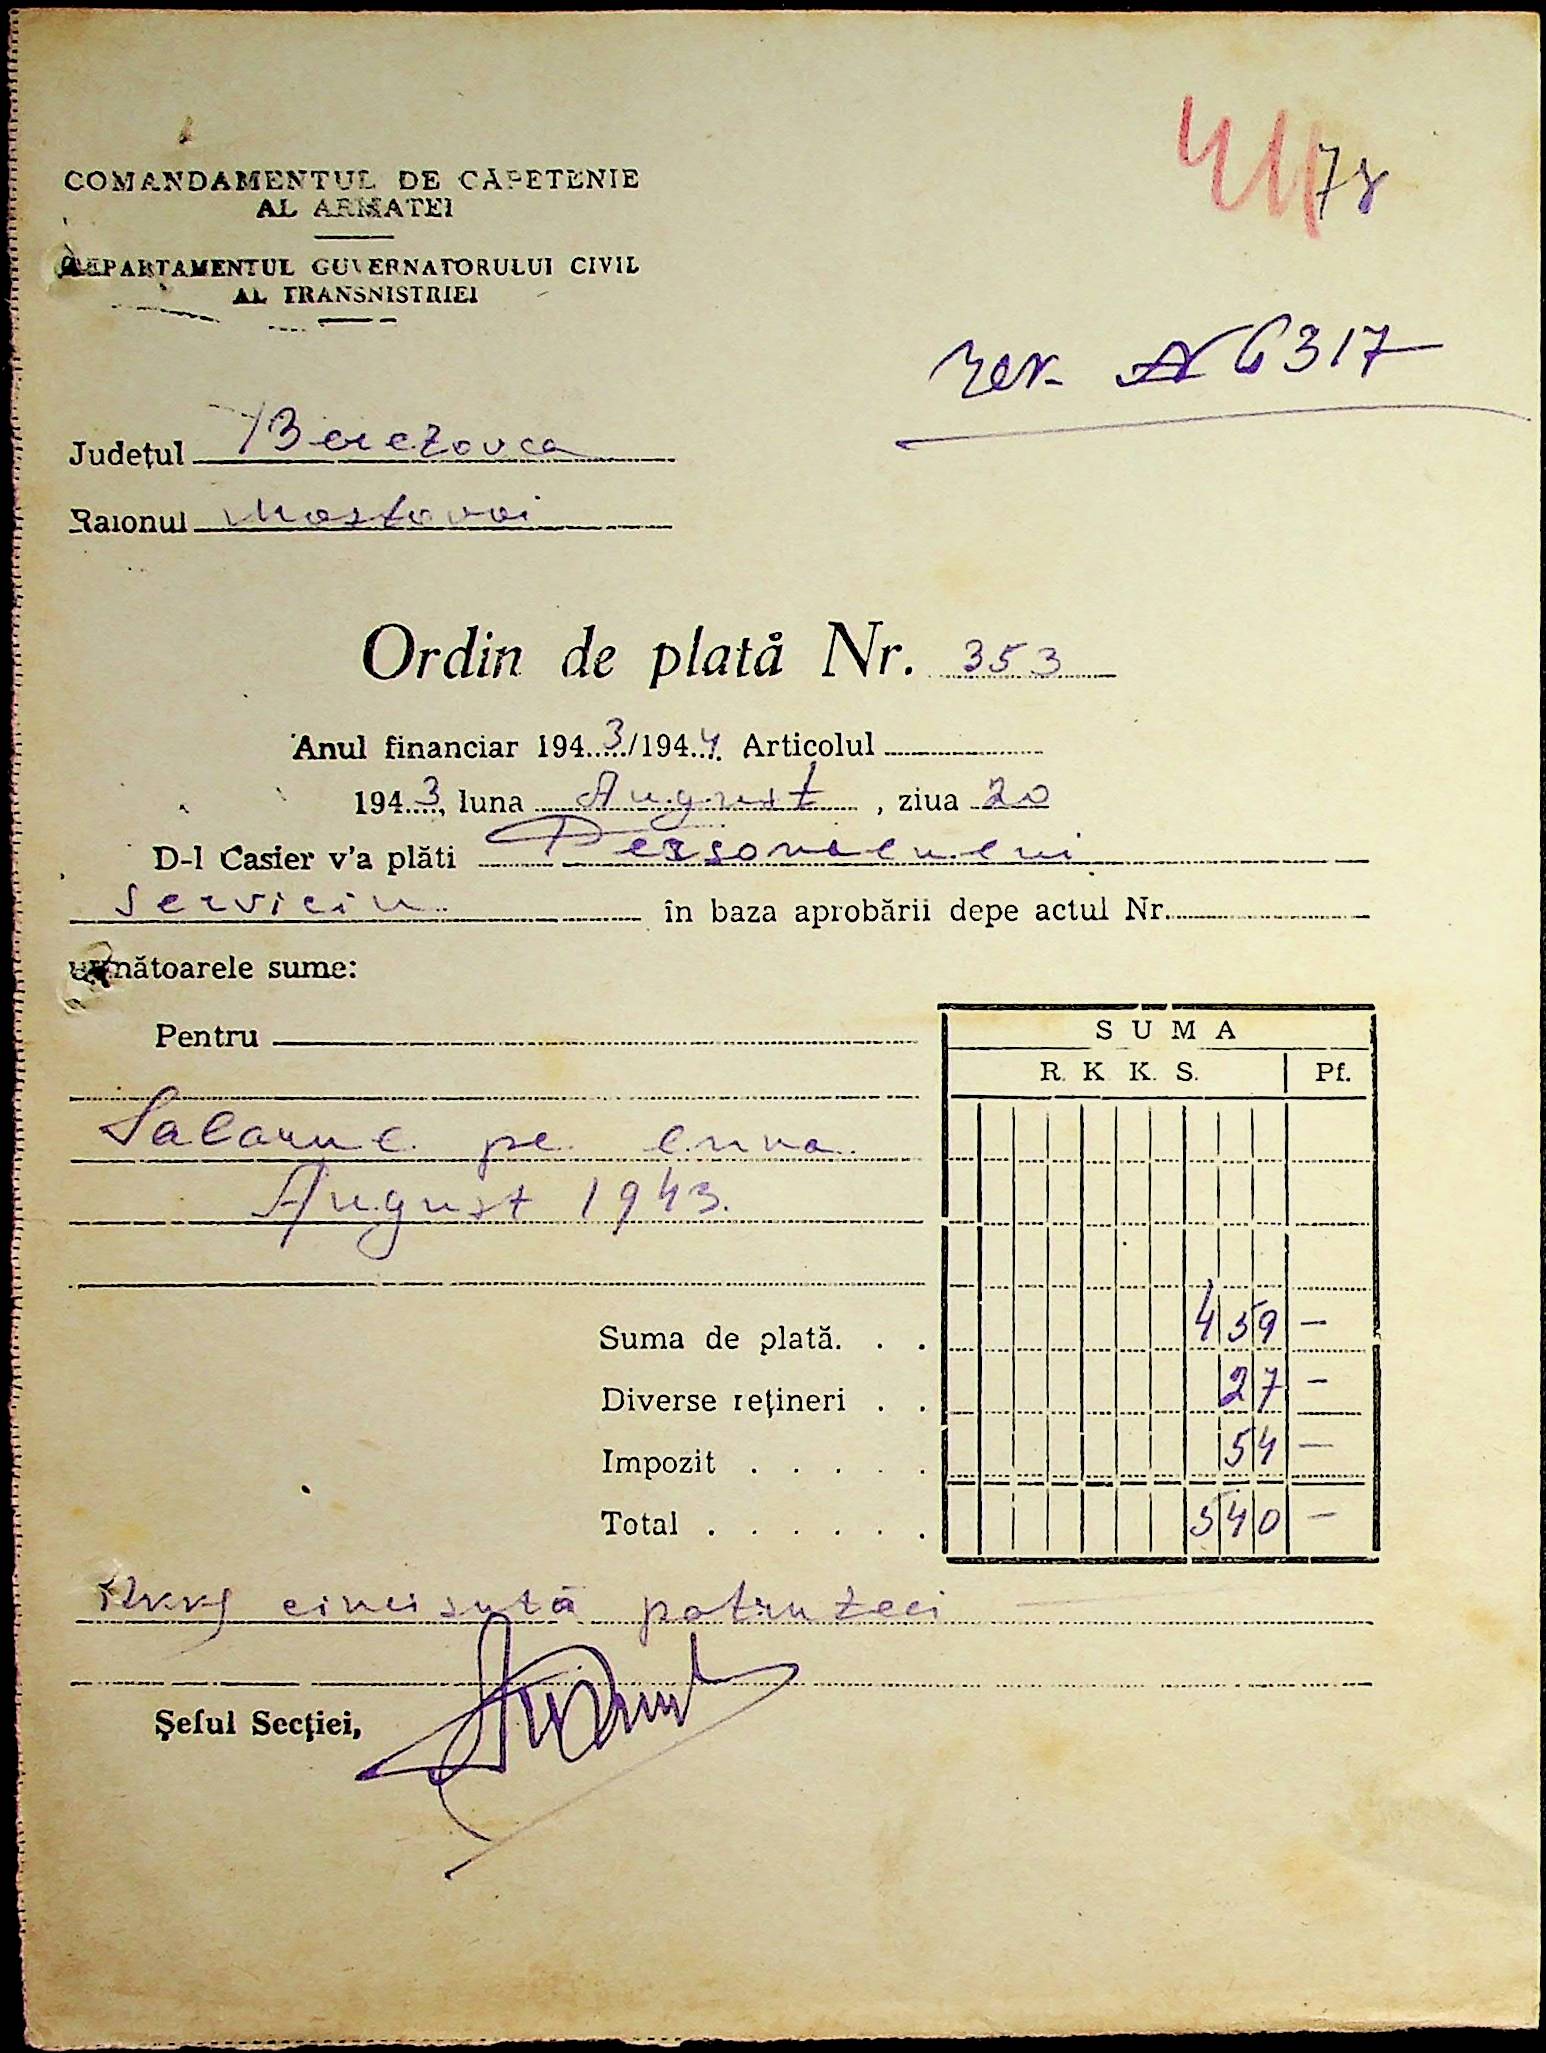 78
COMANDAMENTUL DE CAPETENIE
AL ARMATEI
DEPARTAMENTUL GUVERNATORULUI CIVIL
AL TRANSNISTRIEI
6317
Județul Berezovca
Raionul Mostovoi
Ordin de plată Nr. 353
Anul financiar 1943/1944 Articolul
1943, luna August, ziua 20
D-l Casier v'a plăti Personalului
Serviciu în baza aprobării depe actul Nr.
următoarele sume:
Pentru
SUMA
R. K. K. S. Pf.
Salarul pe luna
August 1943.
Suma de plată. . . 459 —
Diverse rețineri . . 27 —
Impozit . . . . . 54 —
Total . . . . . . 540 —
RKKS cincisută patruzeci —
Șeful Secției,